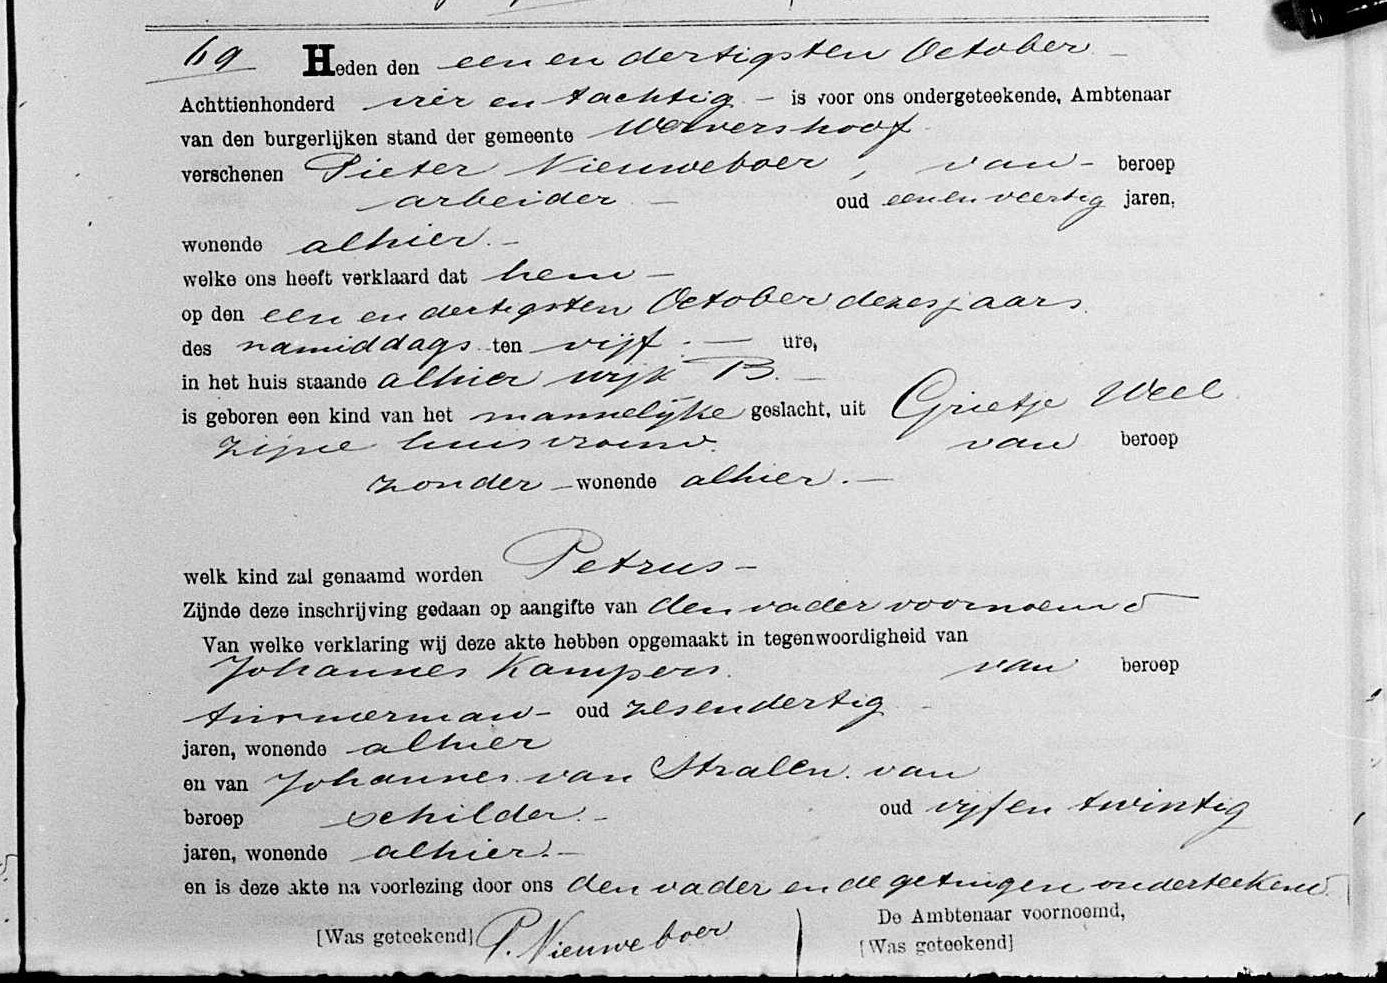 69 Heden den een en dertigsten October -
Achttienhonderd vier en tachtig - is voor ons ondergeteekende, Ambtenaar
van den burgerlijken stand der gemeente Wervershoof
verschenen Pieter Nieuweboer, van - beroep
arbeider - oud eenenveertig jaren,
wonende alhier. -
welke ons heeft verklaard dat hem -
op den een en dertigsten October dezes jaars.
des namiddags ten vijf. - ure,
in het huis staande alhier wijk B. -
is geboren een kind van het mannelijke geslacht, uit Grietje Weel
zijne huisvrouw. van beroep
zonder - wonende alhier. -
welk kind zal genaamd worden Petrus -
Zijnde deze inschrijving gedaan op aangifte van den vader voornoemd
Van welke verklaring wij deze akte hebben opgemaakt in tegenwoordigheid van
Johannes Kampers. van beroep
timmerman - oud zesendertig -
jaren, wonende alhier
en van Johannes van Stralen. van
beroep schilder. - oud vijf en twintig
jaren, wonende alhier. -
en is deze akte na voorlezing door ons den vader en de getuigen onderteekend.
De Ambtenaar voornoemd,
[Was geteekend] P. Nieuweboer [Was geteekend]